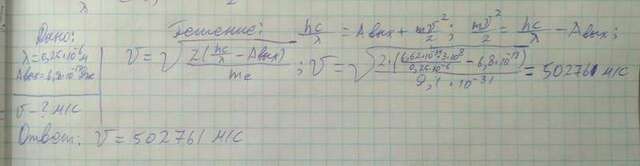 Дано:
λ=0,26·10⁻⁶м
Aвых=6,8·10⁻¹⁹Дж
υ-? м/с
Решение: hc/λ = Aвых + mυ²/2; mυ²/2 = hc/λ - Aвых;
υ = √(2(hc/λ - Aвых)/me); υ = √(2·(6,62·10⁻³⁴·3·10⁸/0,26·10⁻⁶ - 6,8·10⁻¹⁹)/9,1·10⁻³¹) = 502761 м/с
Ответ: υ = 502761 м/с